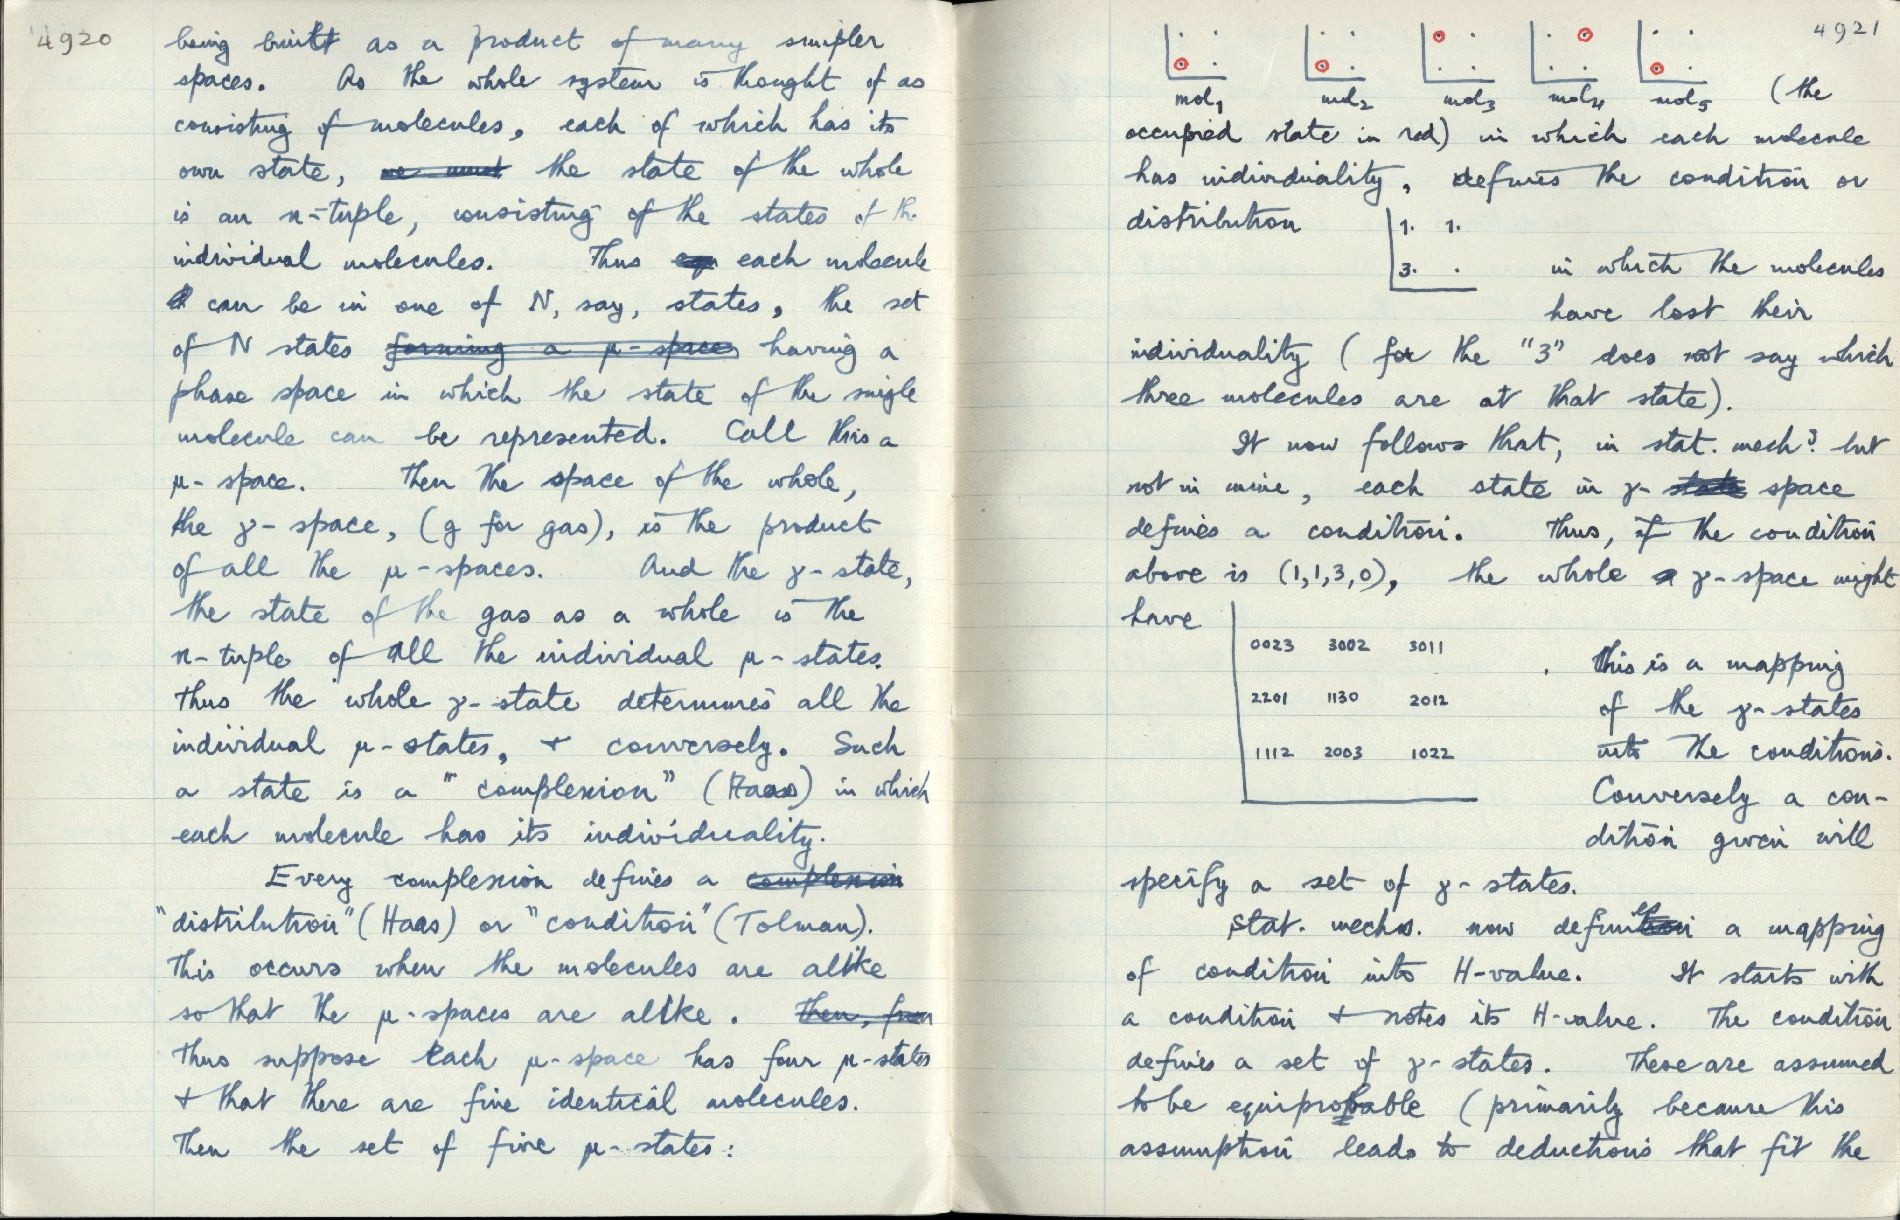 4920
being built as a product of many simpler
spaces. As the whole system is thought of as
consisting of molecules, each of which has its
own state, we must the state of the whole
is an n-tuple, consisting of the states of the
individual molecules. Thus each molecule
can be in one of N, say, states, the set
of N states forming a μ-space having a
phase space in which the state of the single
molecule can be represented. Call this a
μ-space. Then the space of the whole,
the γ-space, (g for gas), is the product
of all the μ-spaces. And the γ-state,
the state of the gas as a whole is the
n-tuple of all the individual μ-states.
Thus the whole γ-state determines all the
individual μ-states, + conversely. Such
a state is a "complexion" (Haas) in which
each molecule has its individuality.
Every complexion defines a complexion
"distribution" (Haas) or "condition" (Tolman).
This occurs when the molecules are alike
so that the μ-spaces are alike. Then, from
Thus suppose each μ-space has four μ-states
+ that there are five identical molecules.
Then the set of five μ-states:
4921
mol1 mol2 mol3 mol4 mol5 (the
occupied state in red) in which each molecule
has individuality, defines the condition or
distribution
1. 1.
3. .
in which the molecules
have lost their
individuality (for the "3" does not say which
three molecules are at that state).
It now follows that, in stat. mech? but
not in mine, each state in γ-state space
defines a condition. Thus, if the condition
above is (1,1,3,0), the whole γ-space might
have
0023 3002 3011
2201 1130 2012
1112 2003 1022
. This is a mapping
of the γ-states
into the conditions.
Conversely a con-
dition given will
specify a set of γ-states.
Stat. mechs. now defines a mapping
of condition into H-value. It starts with
a condition + notes its H-value. The condition
defines a set of γ-states. These are assumed
to be equiprobable (primarily because this
assumption leads to deductions that fit the